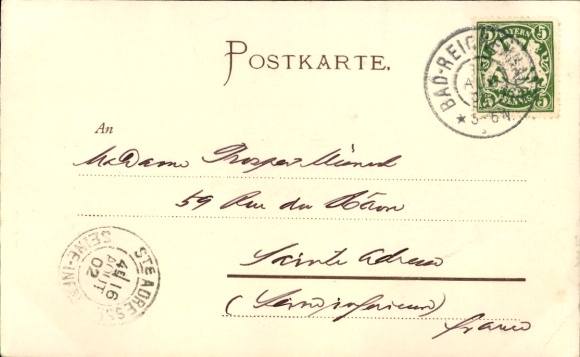 POSTKARTE.
5 BAYERN 5
5 PFENNIG 5
BAD-REIC
3-6 N.
An
Madame Prosper
59 Rue du
Sainte Adresse
(Seine inférieure)
France
STE ADRESSE
4E 16
AOUT
02
SEINE-INF